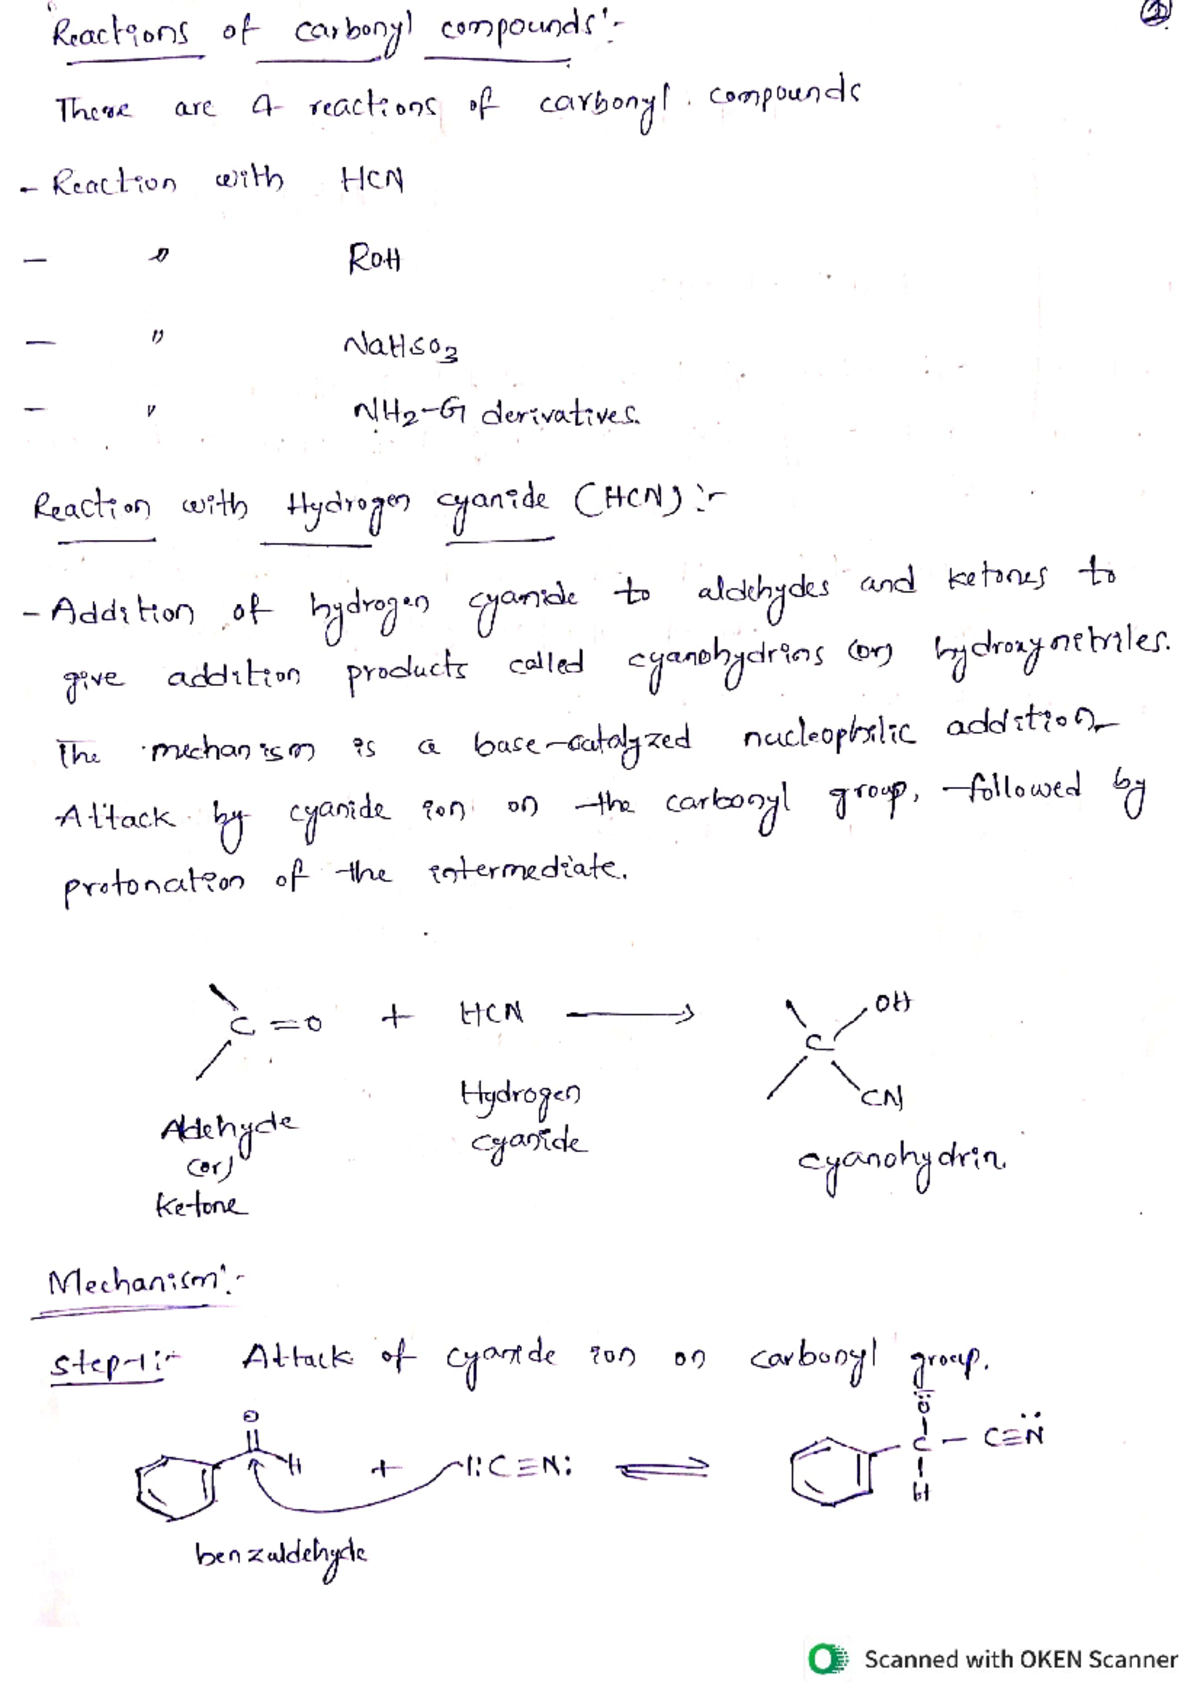 Reactions of carbonyl compounds:-
There are 4 reactions of carbonyl compounds
- Reaction with HCN
- " ROH
- " NaHSO3
- " NH2-G derivatives.
Reaction with Hydrogen cyanide (HCN):-
- Addition of hydrogen cyanide to aldehydes and ketones to
give addition products called cyanohydrins (or) hydroxynitriles.
The mechanism is a base-catalyzed nucleophilic addition
Attack by cyanide ion on the carbonyl group, followed by
protonation of the intermediate.
C=O + HCN → C OH CN
Aldehyde (or) Ketone
Hydrogen cyanide
cyanohydrin.
Mechanism:-
Step-1:- Attack of cyanide ion on carbonyl group.
O H + :C≡N: ⇌ :O: C - C≡N: H
benzaldehyde
Scanned with OKEN Scanner